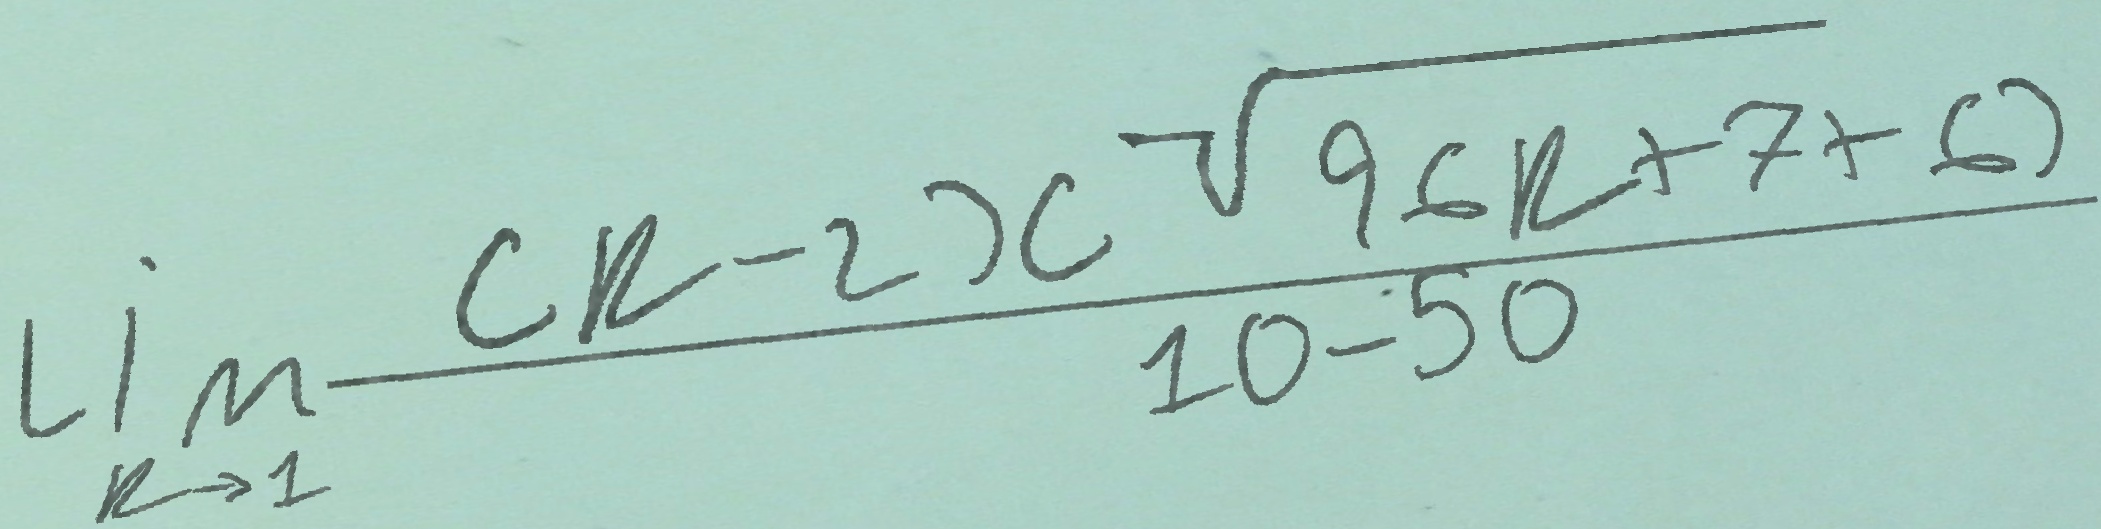 \lim_{k \to 1} \frac{(k-2)(\sqrt{96k+7}+6)}{10-50}